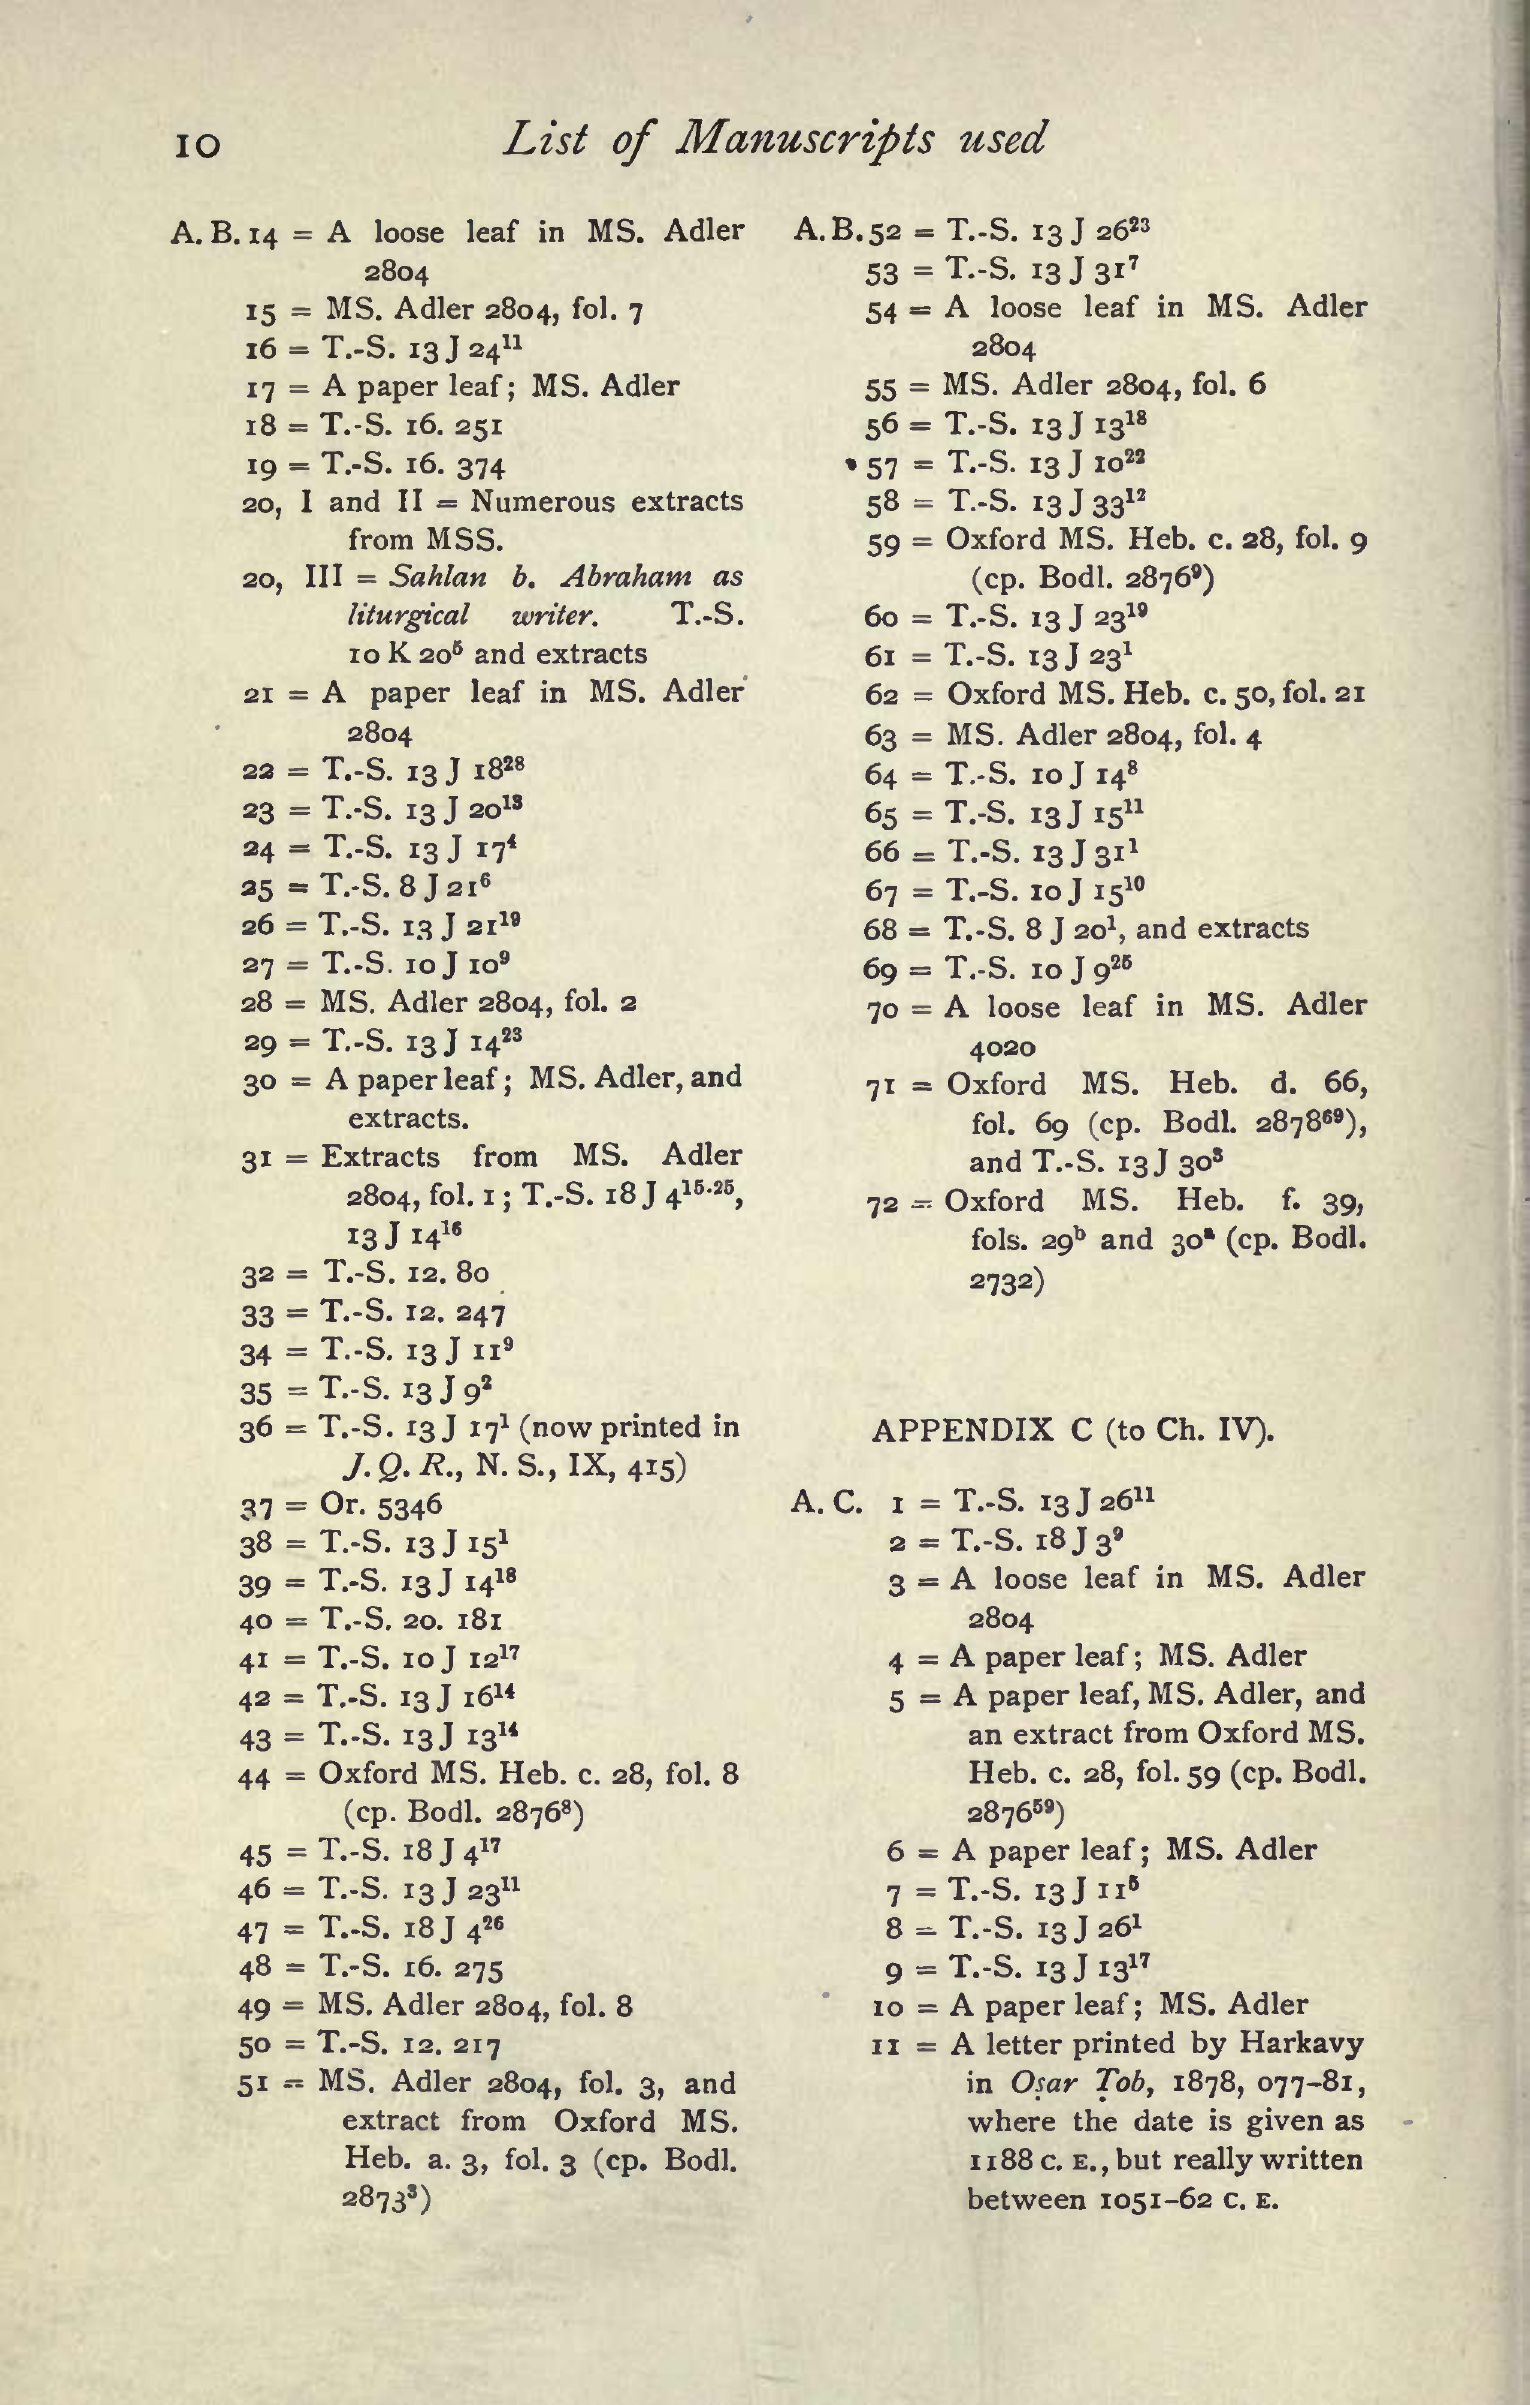 10
List of Manuscripts used
A. B. 14 = A loose leaf in MS. Adler
2804
15 = MS. Adler 2804, fol. 7
16 = T.-S. 13 J 24¹¹
17 = A paper leaf; MS. Adler
18 = T.-S. 16. 251
19 = T.-S. 16. 374
20, I and II = Numerous extracts
from MSS.
20, III = Sahlan b. Abraham as
liturgical writer. T.-S.
10 K 20⁵ and extracts
21 = A paper leaf in MS. Adler
2804
22 = T.-S. 13 J 18²⁸
23 = T.-S. 13 J 20¹³
24 = T.-S. 13 J 17⁴
25 = T.-S. 8 J 21⁶
26 = T.-S. 13 J 21¹⁹
27 = T.-S. 10 J 10⁹
28 = MS. Adler 2804, fol. 2
29 = T.-S. 13 J 14²³
30 = A paper leaf; MS. Adler, and
extracts.
31 = Extracts from MS. Adler
2804, fol. 1; T.-S. 18 J 4¹⁵·²⁵,
13 J 14¹⁶
32 = T.-S. 12. 80
33 = T.-S. 12. 247
34 = T.-S. 13 J 11⁹
35 = T.-S. 13 J 9²
36 = T.-S. 13 J 17¹ (now printed in
J. Q. R., N. S., IX, 415)
37 = Or. 5346
38 = T.-S. 13 J 15¹
39 = T.-S. 13 J 14¹⁸
40 = T.-S. 20. 181
41 = T.-S. 10 J 12¹⁷
42 = T.-S. 13 J 16¹⁴
43 = T.-S. 13 J 13¹⁴
44 = Oxford MS. Heb. c. 28, fol. 8
(cp. Bodl. 2876⁸)
45 = T.-S. 18 J 4¹⁷
46 = T.-S. 13 J 23¹¹
47 = T.-S. 18 J 4²⁶
48 = T.-S. 16. 275
49 = MS. Adler 2804, fol. 8
50 = T.-S. 12. 217
51 = MS. Adler 2804, fol. 3, and
extract from Oxford MS.
Heb. a. 3, fol. 3 (cp. Bodl.
2873³)
A. B. 52 = T.-S. 13 J 26²³
53 = T.-S. 13 J 31⁷
54 = A loose leaf in MS. Adler
2804
55 = MS. Adler 2804, fol. 6
56 = T.-S. 13 J 13¹⁸
57 = T.-S. 13 J 10²²
58 = T.-S. 13 J 33¹²
59 = Oxford MS. Heb. c. 28, fol. 9
(cp. Bodl. 2876⁹)
60 = T.-S. 13 J 23¹⁹
61 = T.-S. 13 J 23¹
62 = Oxford MS. Heb. c. 50, fol. 21
63 = MS. Adler 2804, fol. 4
64 = T.-S. 10 J 14⁸
65 = T.-S. 13 J 15¹¹
66 = T.-S. 13 J 31¹
67 = T.-S. 10 J 15¹⁰
68 = T.-S. 8 J 20¹, and extracts
69 = T.-S. 10 J 9²⁵
70 = A loose leaf in MS. Adler
4020
71 = Oxford MS. Heb. d. 66,
fol. 69 (cp. Bodl. 2878⁶⁹),
and T.-S. 13 J 30³
72 = Oxford MS. Heb. f. 39,
fols. 29ᵇ and 30ᵃ (cp. Bodl.
2732)
APPENDIX C (to Ch. IV).
A. C. 1 = T.-S. 13 J 26¹¹
2 = T.-S. 18 J 3⁹
3 = A loose leaf in MS. Adler
2804
4 = A paper leaf; MS. Adler
5 = A paper leaf, MS. Adler, and
an extract from Oxford MS.
Heb. c. 28, fol. 59 (cp. Bodl.
2876⁵⁹)
6 = A paper leaf; MS. Adler
7 = T.-S. 13 J 11⁵
8 = T.-S. 13 J 26¹
9 = T.-S. 13 J 13¹⁷
10 = A paper leaf; MS. Adler
11 = A letter printed by Harkavy
in Oṣar Ṭob, 1878, 077–81,
where the date is given as
1188 C. E., but really written
between 1051–62 C. E.